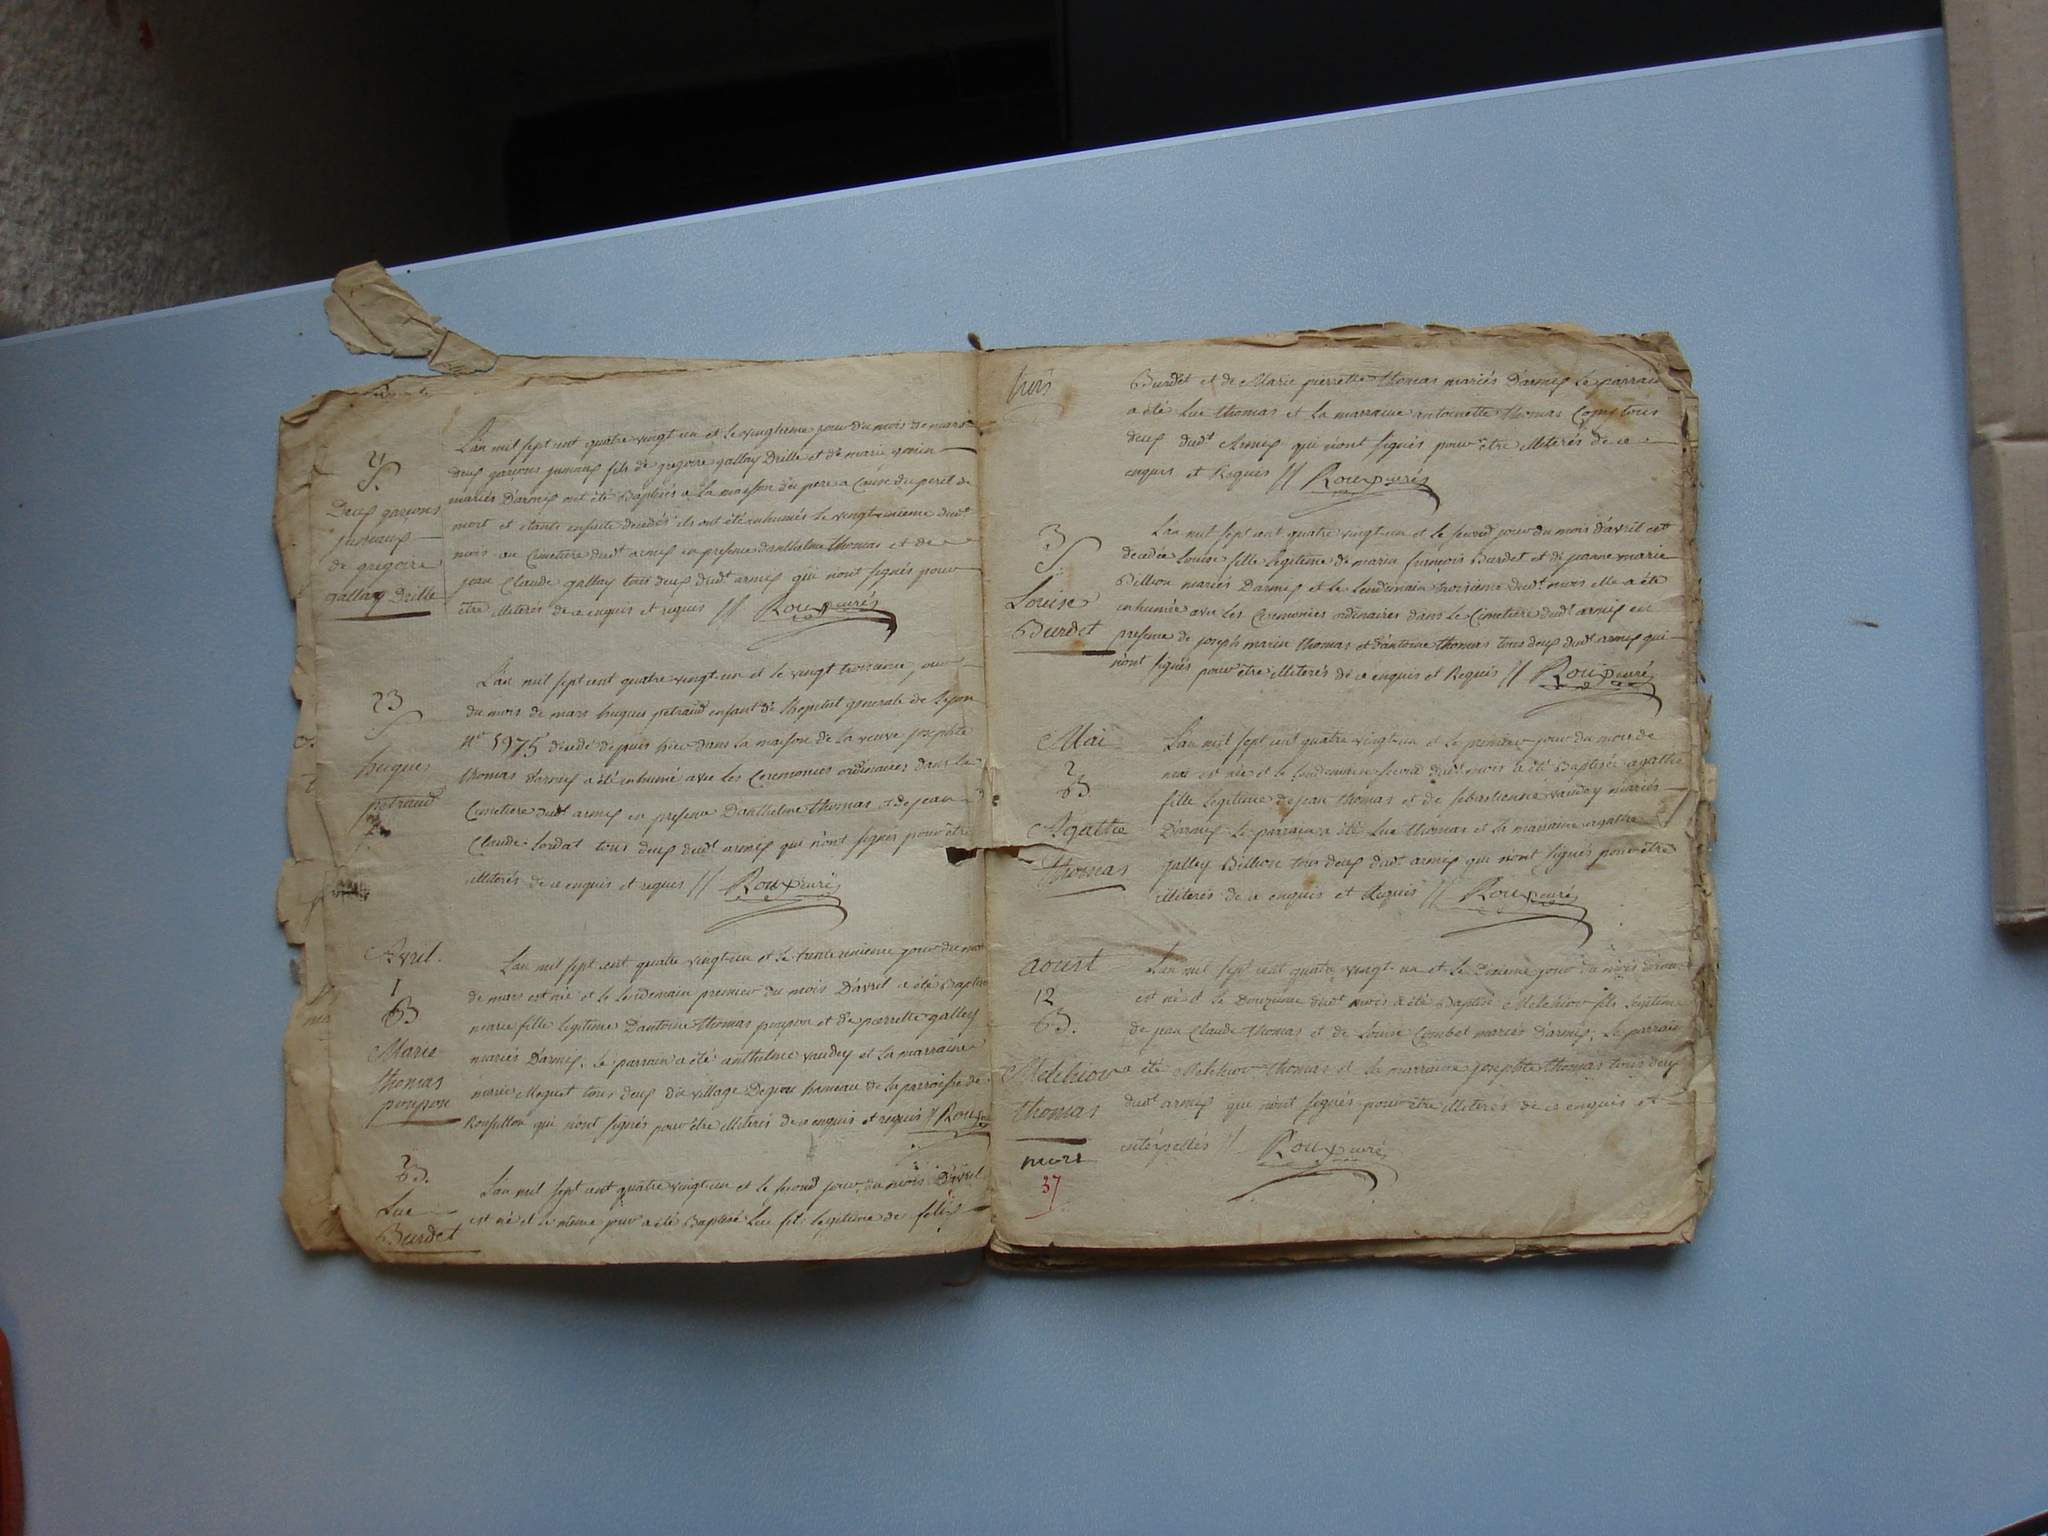 21
S.
Deux garçons
jumeaux
de gregoire
gallay Drille
L'an mil sept cent quatre vingt un et le vingtieme jour du mois de mars
deux garçons jumeaux fils de gregoire gallay Drille et de marie
mariés D'armix ont été Baptisés a la maison du pere a Cause du peril de
mort et etants ensuite decedés ils ont été inhumés le vingt unieme dudt
mois au Cimetiere dudt armix en presence d'anthelme thomas et de
jean Claude gallay tous deux dudt armix qui n'ont signés pour
être illiterés de ce enquis et requis // Roux curé
23
S
hugues
petraud
L'an mil sept cent quatre vingt un et le vingt troisieme jour
du mois de mars hugues petraud enfant de l'hopital generale de Lyon
Nº 5975 décedé depuis hier dans la maison de la veuve josephte
thomas d'armix a été inhumé avec les Ceremonies ordinaires dans le
Cimetiere dudt armix en presence D'anthelme thomas et de jean
Claude Lordat tous deux dudt armix qui n'ont signés pour être
illiterés de ce enquis et requis // Roux curé
Avril.
1
B
Marie
thomas
poupon
L'an mil sept cent quatre vingt un et le trente unieme jour du mois
de mars est née et le lendemain premier du mois D'avril a été Baptisée
marie fille legitime D'antoine thomas poupon et de pierrette galley
mariés D'armix. le parrain a été anthelme vaudey et la marraine
marie Moguet tous deux du village hameau de la parroisse de
Rossillon qui n'ont signés pour être illiterés de ce enquis et requis // Roux curé
2
B.
Luc
Burdet
L'an mil sept cent quatre vingt un et le second jour du mois D'avril
est né et le même jour a été Baptisé Luc fils legitime de felix
trois
Burdet et de Marie pierrette thomas mariés D'armix Le parrain
a été Luc thomas et la marraine antoinette thomas tous
deux dudt Armix qui n'ont signés pour être illiterés de ce
enquis et Requis // Roux curé
3
S
Louise
Burdet
L'an mil sept cent quatre vingt un et le second jour du mois d'avril est
decedée Louise fille legitime de marin françois Burdet et de jeanne marie
Billion mariés Darmix et le lendemain troisieme dudt mois elle a été
inhumée avec les Ceremonies ordinaires dans le Cimetiere dudt armix en
presence de joseph marin thomas et d'antoine thomas tous deux dudt armix qui
n'ont signés pour être illiterés de ce enquis et Requis // Roux curé
Mai
2
B
Agathe
thomas
L'an mil sept cent quatre vingt un et le premier jour du mois de
mai est née et le lendemain second dudt mois a été Baptisée agathe
fille legitime de jean thomas et de sebastienne vaudey mariés
D'armix le parrain a été Luc thomas et la marraine agathe
galley Billion tous deux dudt armix qui n'ont signés pour être
illiterés de ce enquis et Requis // Roux curé
aoust
12
B.
Melchior
thomas
L'an mil sept cent quatre vingt un et le dixieme jour du mois d'aoust
est né et le Douzieme dudt mois a été Baptisé Melchior fils legitime
de jean Claude thomas et de Louise Combet mariés D'armix; Le parrain
a été Melchior thomas et la marraine josephte thomas tous deux
dudt armix qui n'ont signés pour être illiterés de ce enquis et
interpellés // Roux curé
mort
37